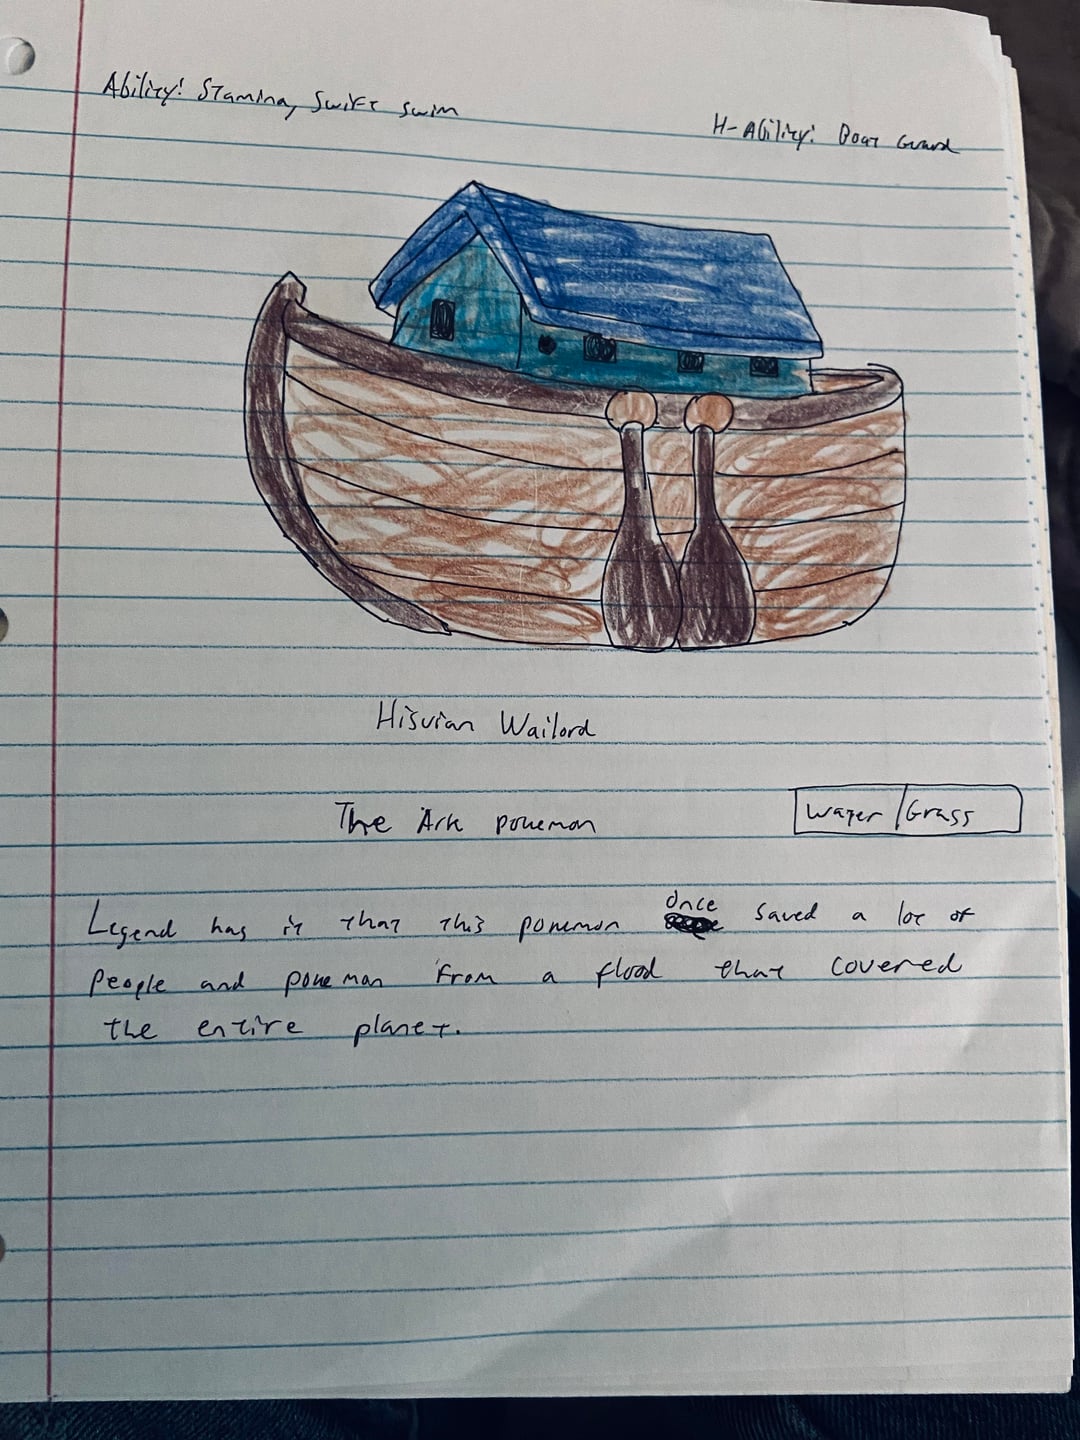 Ability: Stamina, Swift swim
H-Ability: Boat Guard
Hisuian Wailord
The Ark pokemon
Water/Grass
Legend has it that this pokemon once saved a lot of
people and pokemon from a flood that covered
the entire planet.